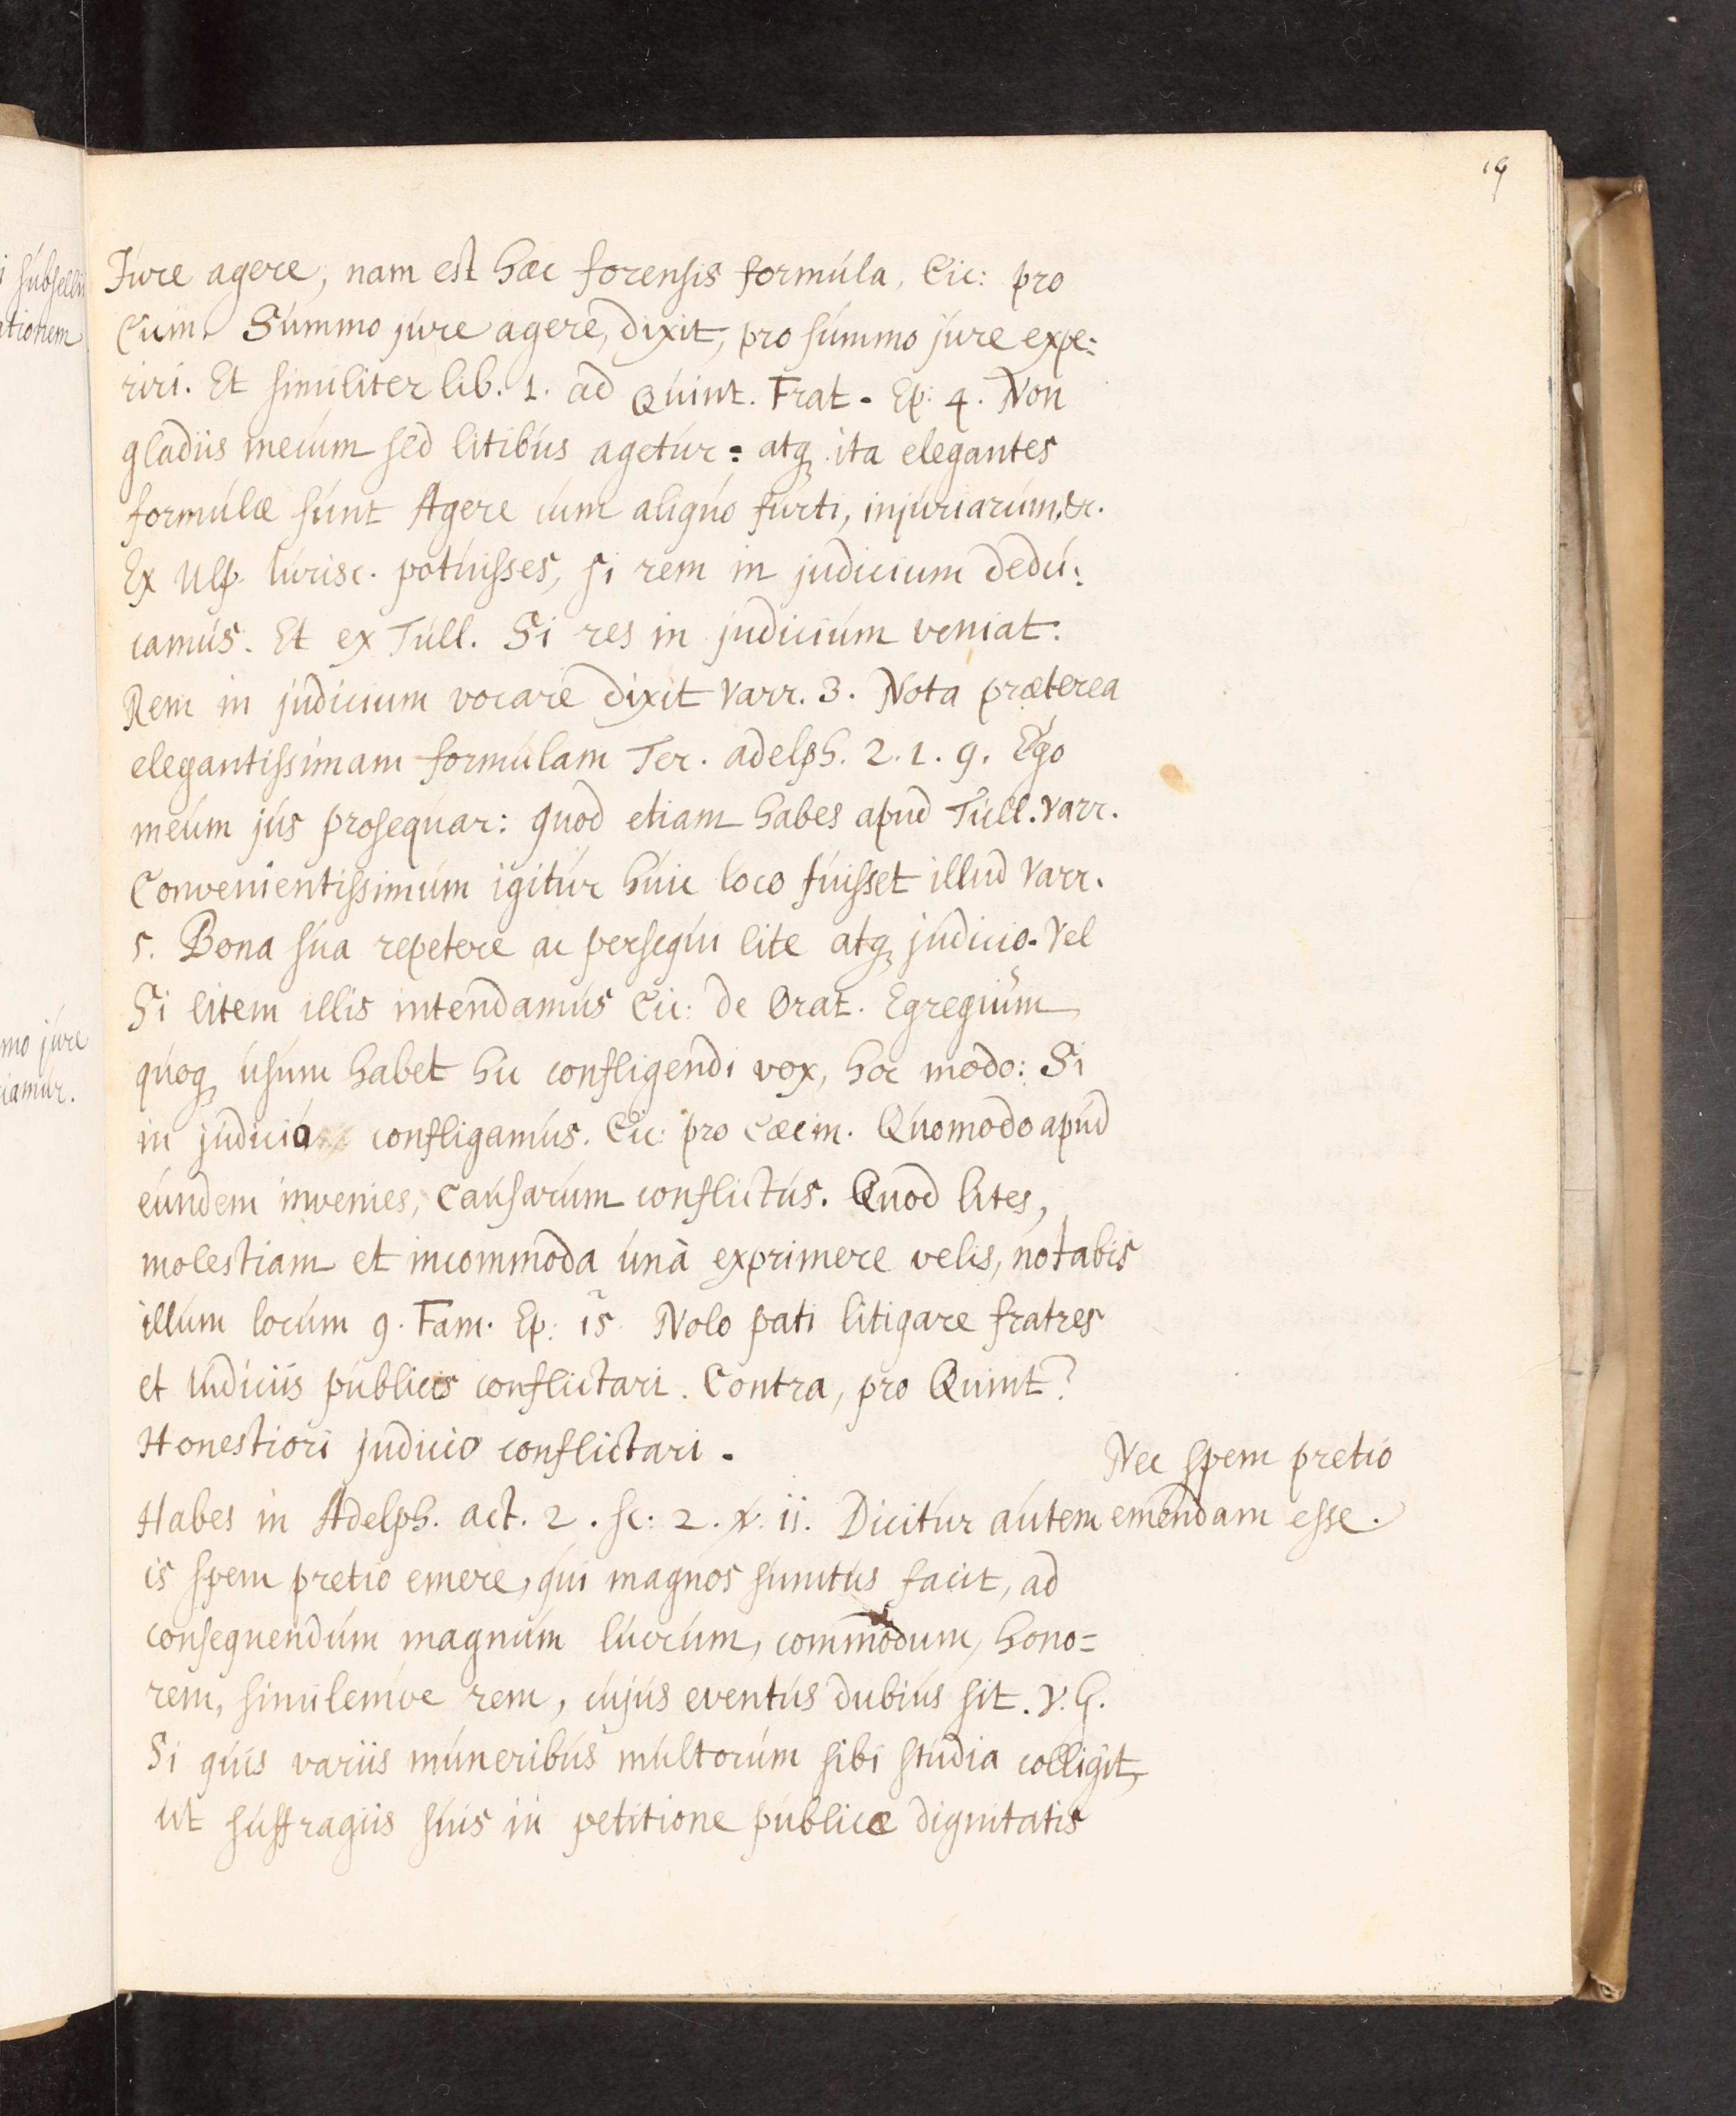 19
Jure agere, nam est hæc forensis formúla, Cic: pro
Súmmo júre agere, dixit, pro súmmo júre expe:
riri. Et similiter lib. 1. ad Quint. Frat. Ep: 4. Non
gladiis mecúm sed litibús agetúr: atq ita elegantes
formúlæ súnt Agere cúm aliqúo fúrti, injúriarúm, &c.
Ex Ulp. Iúrisc. potúisses, si rem in júdicium dedú:
camús. Et ex Túll. Si res in júdiciúm veniat.
Rem in júdicium vocare dixit Varr. 3. Nota præterea
elegantissimam formúlam Ter. adelph. 2. 1. 9. Ego
meúm jús proseqúar: quod etiam habes apúd Túll. Varr.
Convenientissimúm igitúr húic loco fúisset illud Varr.
5. Bona súa repetere ac perseqúi lite atq júdicio. Vel
Si litem illis intendamús Cic: de Orat. Egregiúm
qúoq úsúm habet hic confligendi vox, hoc modo: Si
in júdicio confligamús. Cic: pro Cæcin. Qúomodo apúd
eúndem invenies, caúsarúm conflictús. Quod lites,
molestiam et incommoda únà exprimere velis, notabis
illúm locúm 9. Fam. Ep: 15 Nolo pati litigare fratres
et Iúdiciis públicis conflictari. Contra, pro Quint?
Honestiori júdicio conflictari.
Nec spem pretio
emendam esse.
Habes in Adelph. act. 2. sc: 2. v. 11. Dicitúr aútem
is spem pretio emere, qúi magnos súmtús facit, ad
conseqúendúm magnúm lúcrúm, commodum, hono=
rem, similemve rem, cújús eventús dubiús sit. V. G.
Si qúis variis múneribús múltorúm sibi stúdia colligit,
út súffragiis súis in petitione públicæ dignitatis
i súbselli
ationem
mo júre
iamúr.